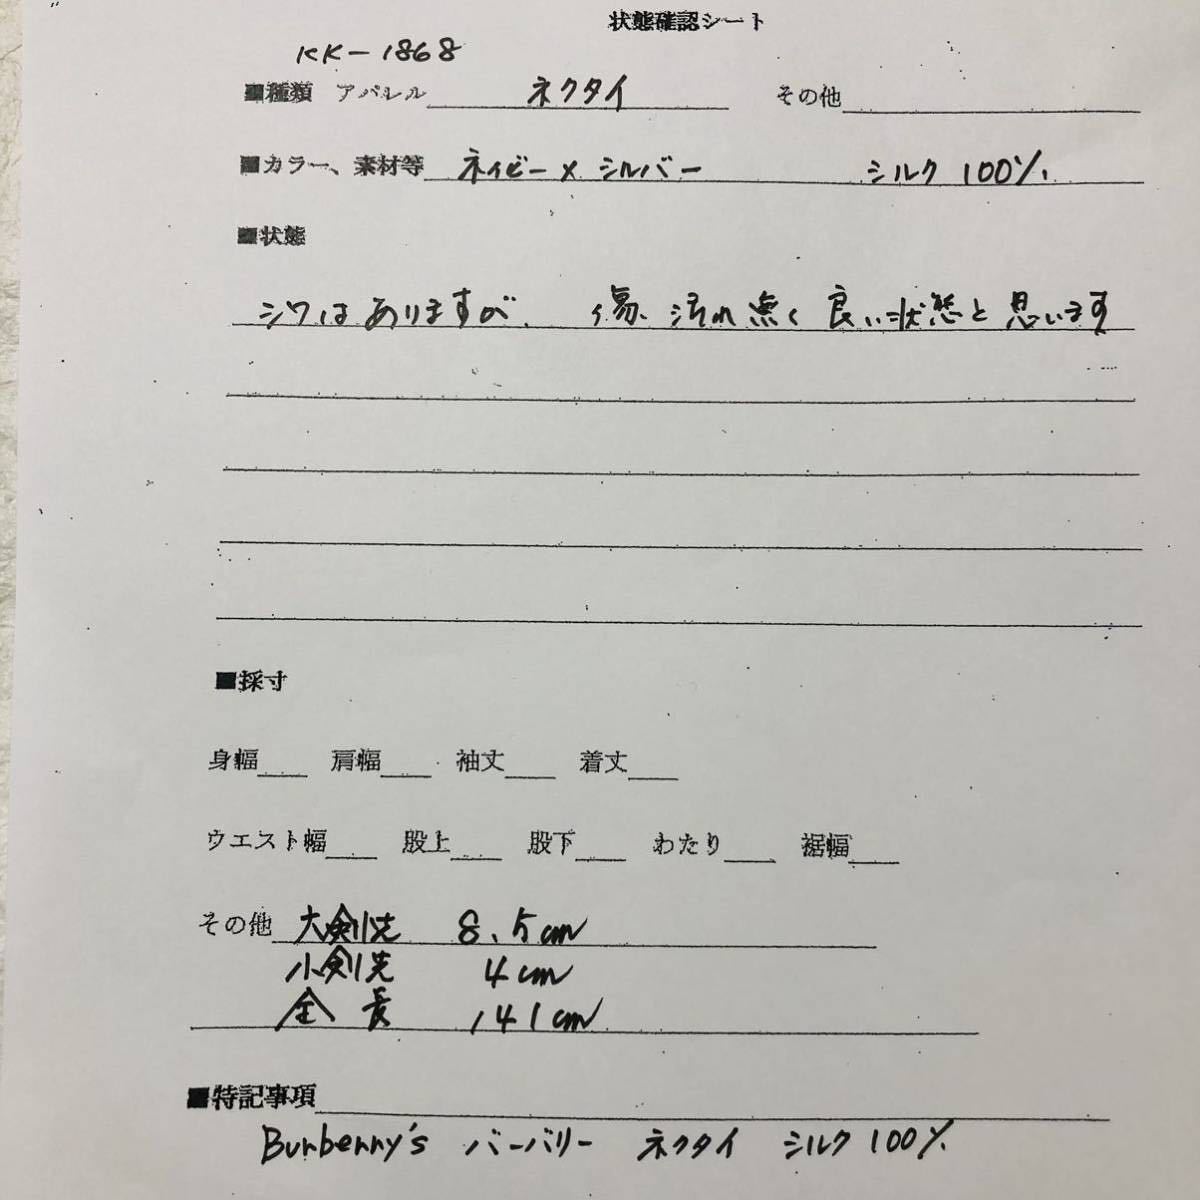 状態確認シート
KK-1868
■種類 アパレル ネクタイ その他
■カラー、素材等 ネイビー×シルバー シルク 100%
■状態
シワはありますが、 傷、汚れ無く 良い状態と思います
■採寸
身幅 肩幅 袖丈 着丈
ウエスト幅 股上 股下 わたり 裾幅
その他 大剣先 8.5cm
小剣先 4cm
全長 141cm
■特記事項
Burberry's バーバリー ネクタイ シルク 100%